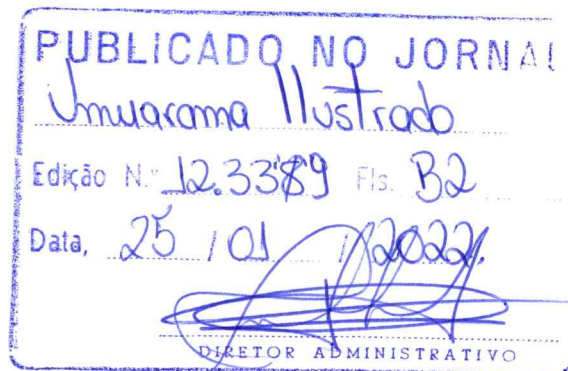 PUBLICADO NO JORNAL
Umuarama Ilustrado
Edição N.º 12.3389 Fls. B2
Data, 25 / 01 / 2022.
DIRETOR ADMINISTRATIVO